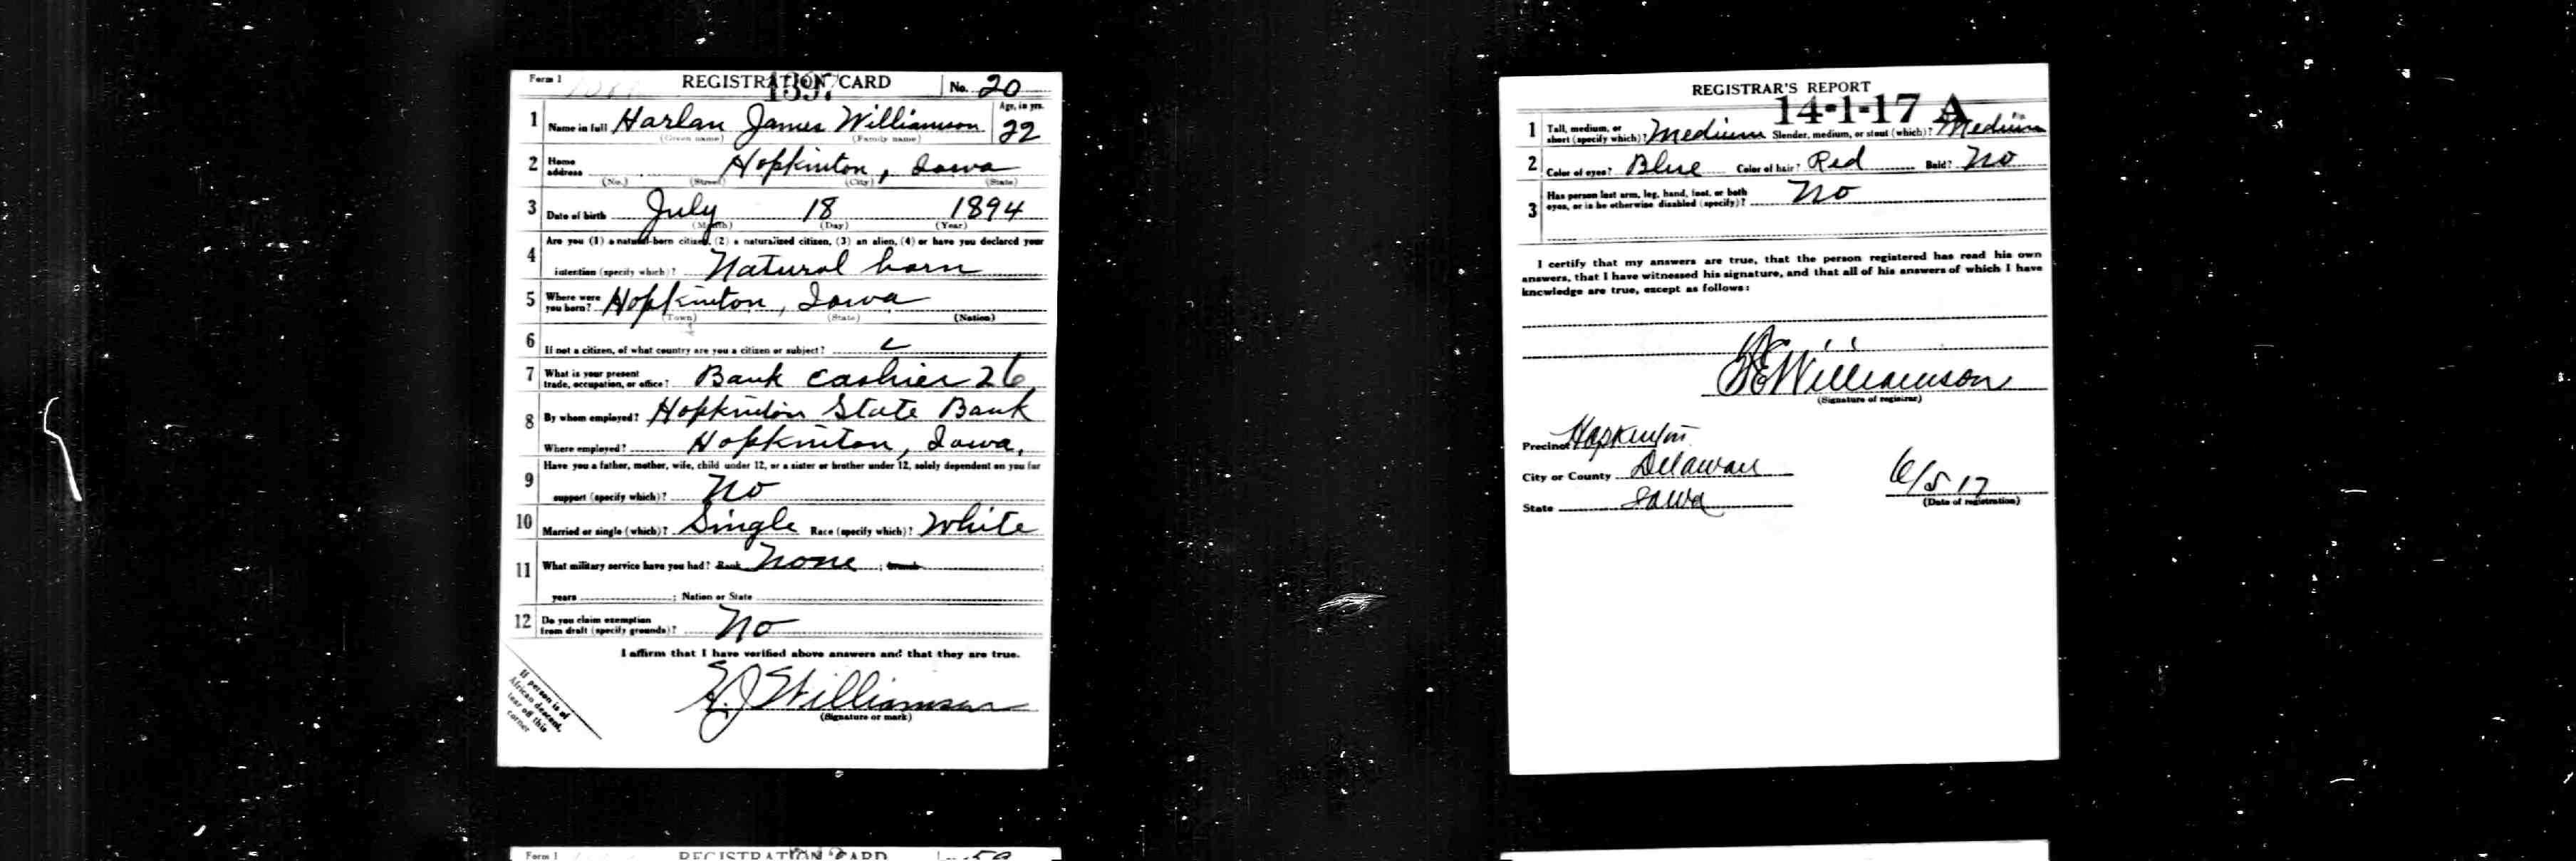 Form 1 REGISTRATION CARD No. 20
1 Name in full Harlan James Williamson Age, in yrs. 22
(Given name) (Family name)
2 Home address Hopkinton, Iowa
(No.) (Street) (City) (State)
3 Date of birth July 18 1894
(Month) (Day) (Year)
4 Are you (1) a natural-born citizen, (2) a naturalized citizen, (3) an alien, (4) or have you declared your
intention (specify which)? Natural born
5 Where were you born? Hopkinton, Iowa
(Town) (State) (Nation)
6 If not a citizen, of what country are you a citizen or subject?
7 What is your present trade, occupation, or office? Bank cashier 26
8 By whom employed? Hopkinton State Bank
Where employed? Hopkinton, Iowa,
9 Have you a father, mother, wife, child under 12, or a sister or brother under 12, solely dependent on you for
support (specify which)? No
10 Married or single (which)? Single Race (specify which)? White
11 What military service have you had? Rank None ; branch ;
years ; Nation or State
12 Do you claim exemption from draft (specify grounds)? No
I affirm that I have verified above answers and that they are true.
H. J. Williamson
(Signature or mark)
If person is of
African descent,
tear off this
corner
REGISTRAR'S REPORT
14-1-17 A
1 Tall, medium, or short (specify which)? Medium Slender, medium, or stout (which)? Medium
2 Color of eyes? Blue Color of hair? Red Bald? No
3 Has person lost arm, leg, hand, foot, or both
eyes, or is he otherwise disabled (specify)? No
I certify that my answers are true, that the person registered has read his own
answers, that I have witnessed his signature, and that all of his answers of which I have
knowledge are true, except as follows:
Williamson
(Signature of registrar)
Precinct Hopkinton
City or County Delaware
State Iowa
6/5 17
(Date of registration)
Form 1 REGISTRATION CARD